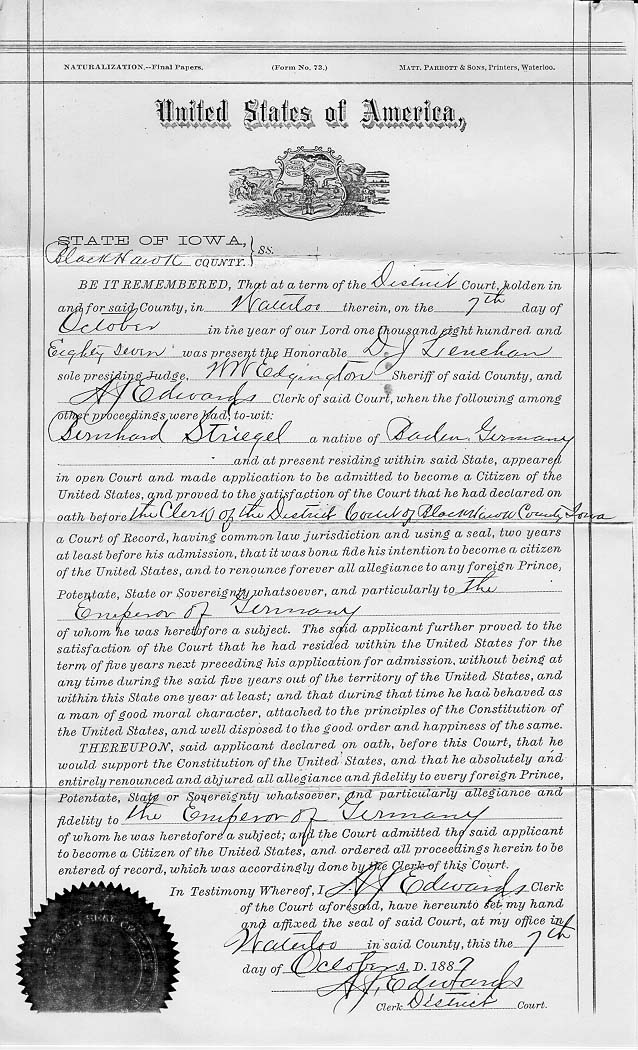 NATURALIZATION.--Final Papers. (Form No. 73.) MATT. PARROTT & SONS, Printers, Waterloo.
United States of America,
STATE OF IOWA, } SS.
Black Hawk COUNTY.
BE IT REMEMBERED, That at a term of the District Court, holden in
and for said County, in Waterloo therein, on the 7th day of
October in the year of our Lord one thousand eight hundred and
Eighty Seven was present the Honorable D. J Lenehan
sole presiding Judge, W W Edgington Sheriff of said County, and
A J Edwards Clerk of said Court, when the following among
other proceedings were had, to-wit:
Bernhard Striegel a native of Baden, Germany
and at present residing within said State, appeared
in open Court and made application to be admitted to become a Citizen of the
United States, and proved to the satisfaction of the Court that he had declared on
oath before the Clerk of the District Court of Black Hawk County, Iowa
a Court of Record, having common law jurisdiction and using a seal, two years
at least before his admission, that it was bona fide his intention to become a citizen
of the United States, and to renounce forever all allegiance to any foreign Prince,
Potentate, State or Sovereignty whatsoever, and particularly to the
Emperor of Germany
of whom he was heretofore a subject. The said applicant further proved to the
satisfaction of the Court that he had resided within the United States for the
term of five years next preceding his application for admission, without being at
any time during the said five years out of the territory of the United States, and
within this State one year at least; and that during that time he had behaved as
a man of good moral character, attached to the principles of the Constitution of
the United States, and well disposed to the good order and happiness of the same.
THEREUPON, said applicant declared on oath, before this Court, that he
would support the Constitution of the United States, and that he absolutely and
entirely renounced and abjured all allegiance and fidelity to every foreign Prince,
Potentate, State or Sovereignty whatsoever, and particularly allegiance and
fidelity to the Emperor of Germany
of whom he was heretofore a subject; and the Court admitted the said applicant
to become a Citizen of the United States, and ordered all proceedings herein to be
entered of record, which was accordingly done by the Clerk of this Court.
In Testimony Whereof, I A J Edwards Clerk
of the Court aforesaid, have hereunto set my hand
and affixed the seal of said Court, at my office in
Waterloo in said County, this the 7th
day of October A. D. 1887
A J, Edwards
Clerk District Court.